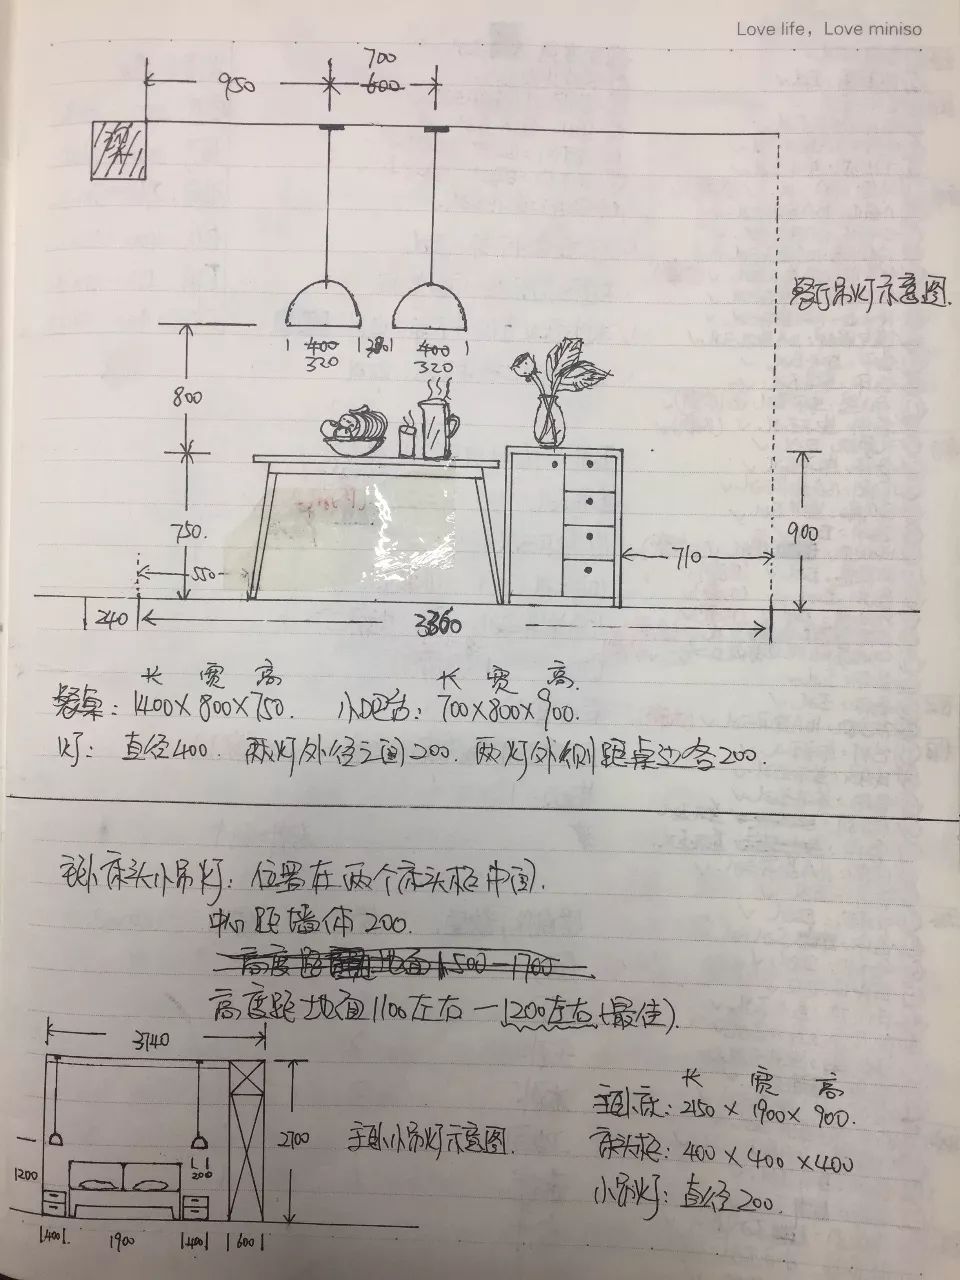 Love life, Love miniso
700
950
600
梁
餐厅吊灯示意图.
400
400
320
320
800
750.
900
550
710
240
3360
长 宽 高
长 宽 高.
餐桌: 1400×800×750.
小吧台: 700×800×900.
灯: 直径400. 两灯外径之间200. 两灯外侧距桌边各200.
主卧床头小吊灯: 位置在两个床头柜中间.
中心距墙体200.
高度距 地面1500-1700
高度距地面1100左右-1200左右(最佳).
3140
2700
主卧小吊灯示意图.
长 宽 高
主卧床: 2150×1900×900.
床头柜: 400×400×400
小吊灯: 直径200.
1200
200
400
1900
400
600